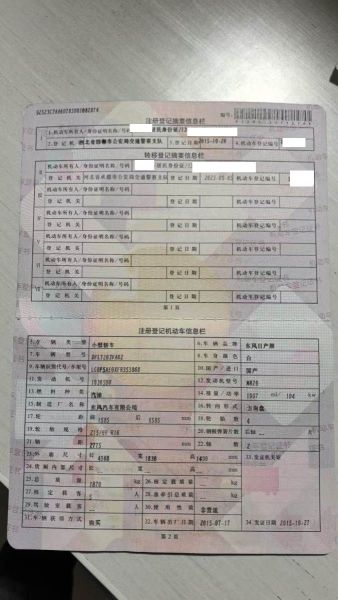 注册登记摘要信息栏
编号:
1.机动车所有人/身份证明名称/号码 居民身份证/
2.登记机关 河北省邯郸市公安局交通警察支队 3.登记日期 2015-10-28 4.机动车登记编号
转移登记摘要信息栏
机动车所有人/身份证明名称/号码 居民身份证/
登记机关 登记日期 机动车登记编号
机动车所有人/身份证明名称/号码
登记机关 登记日期 机动车登记编号
机动车所有人/身份证明名称/号码
登记机关 登记日期 机动车登记编号
机动车所有人/身份证明名称/号码
登记机关 登记日期 机动车登记编号
机动车所有人/身份证明名称/号码
登记机关 登记日期 机动车登记编号
机动车所有人/身份证明名称/号码
登记机关 登记日期 机动车登记编号
第1页
注册登记机动车信息栏
5.车辆类型 小型轿车 6.车辆品牌 东风日产牌
7.车辆型号 8.车身颜色 白
9.车辆识别代号/车架号 10.国产/进口 国产
11.发动机号 12.发动机型号 MR20
13.燃料种类 汽油 14.排量/功率 1997 ml/ 104 kw
15.制造厂名称 东风汽车有限公司 16.转向形式 方向盘
17.轮距 前 1585 后 1585 mm 18.轮胎数 4
19.轮胎规格 215/60 R16 20.钢板弹簧片数 后轴 -- 片
21.轴距 2775 mm 22.轴数 2
23.外廓尺寸 长 宽 1830 高 mm 33.发证机关章
24.货厢内部尺寸 长 -- 宽 -- 高 -- mm
25.总质量 1870 kg 26.核定载质量 -- kg
27.核定载客 5 人 28.准牵引总质量 -- kg
29.驾驶室载客 -- 人 30.使用性质 非营运
31.车辆获得方式 购买 32.车辆出厂日期 2015-07-17 34.发证日期 2015-10-27
第2页